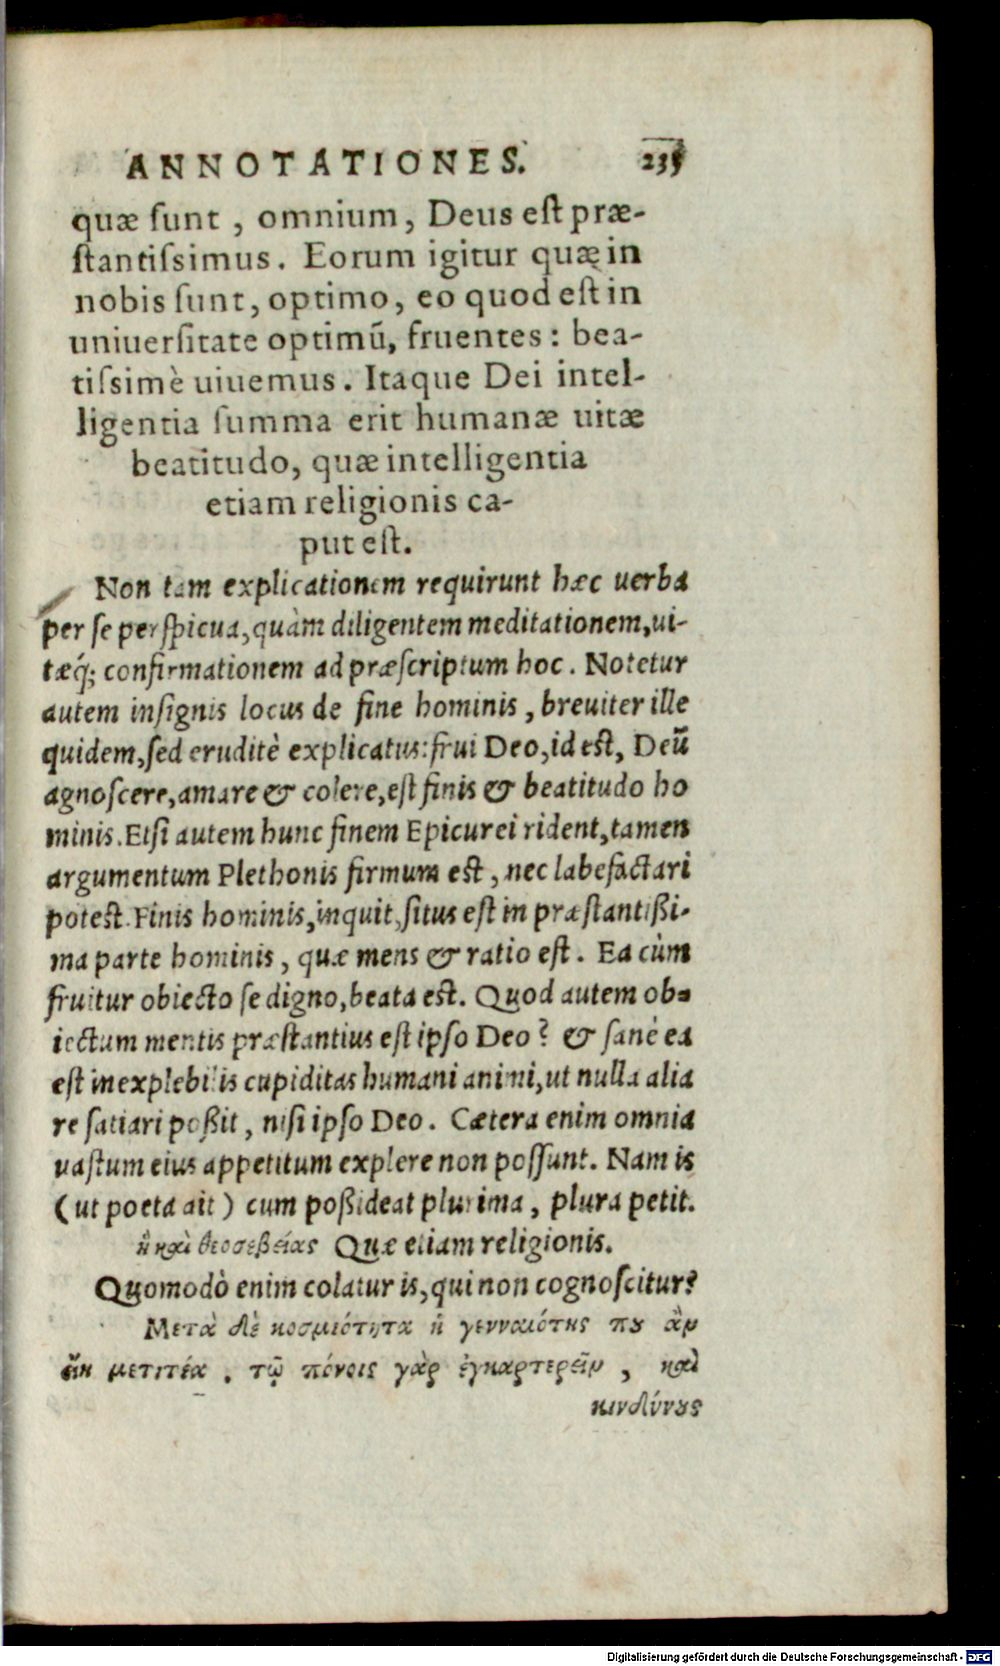 ANNOTATIONES. 235
quæ ſunt, omnium, Deus eſt præ-
ſtantiſsimus. Eorum igitur quæ in
nobis ſunt, optimo, eo quod eſt in
uniuerſitate optimū, fruentes: bea-
tiſsimè uiuemus. Itaque Dei intel-
ligentia ſumma erit humanæ uitæ
beatitudo, quæ intelligentia
etiam religionis ca-
put eſt.
Non tam explicationem requirunt hæc uerba
per ſe perſpicua, quàm diligentem meditationem, ui-
tæq́; confirmationem ad præſcriptum hoc. Notetur
autem inſignis locus de fine hominis, breuiter ille
quidem, ſed eruditè explicatus: frui Deo, id eſt, Deū
agnoſcere, amare & colere, eſt finis & beatitudo ho
minis. Etſi autem hunc finem Epicurei rident, tamen
argumentum Plethonis firmum eſt, nec labefactari
poteſt. Finis hominis, inquit, ſitus eſt in præſtantißi-
ma parte hominis, quæ mens & ratio eſt. Ea cùm
fruitur obiecto ſe digno, beata eſt. Quod autem ob-
iectum mentis præſtantius eſt ipſo Deo? & ſanè ea
eſt inexplebilis cupiditas humani animi, ut nulla alia
re ſatiari poßit, niſi ipſo Deo. Cætera enim omnia
uaſtum eius appetitum explere non poſſunt. Nam is
(ut poeta ait) cum poßideat plurima, plura petit.
ἣ καὶ θεοσεβείας Quæ etiam religionis.
Quomodò enim colatur is, qui non cognoſcitur?
Μετὰ δὲ κοσμιότητα ἡ γενναιότης που ἂν
εἴη μετιτέα. τῷ πόνοις γὰρ ἐγκαρτερεῖν, καὶ
κινδύνους
Digitalisierung gefördert durch die Deutsche Forschungsgemeinschaft - DFG